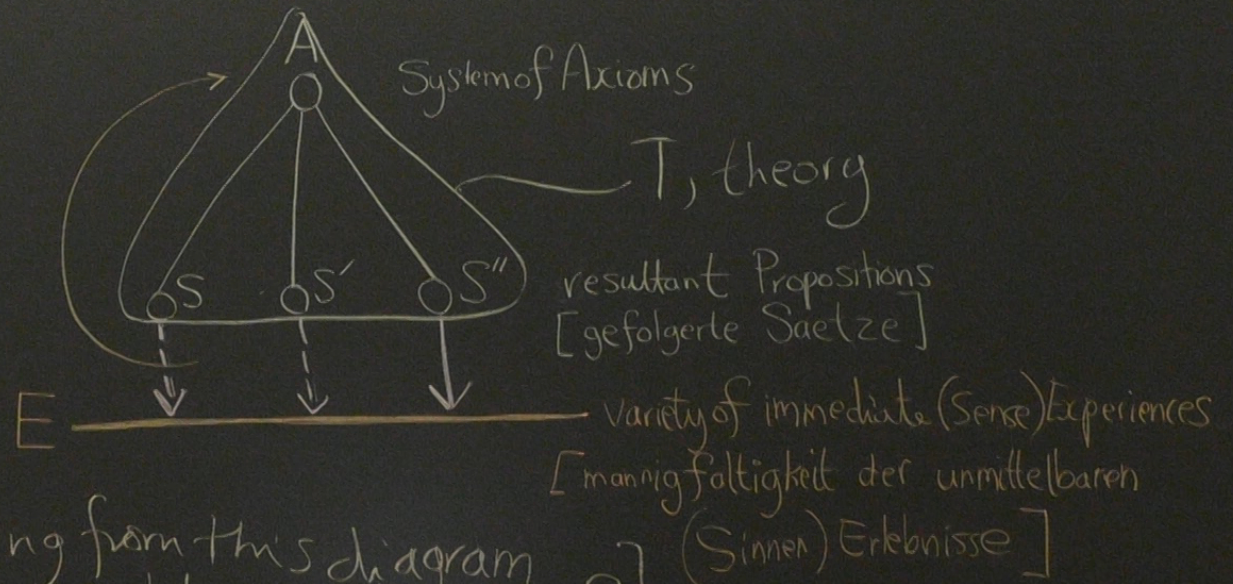 A
System of Axioms
T, theory
S S' S"
resultant Propositions
[gefolgerte Saetze]
E
variety of immediate (Sense) Experiences
[mannigfaltigkeit der unmittelbaren
(Sinnen) Erlebnisse]
ng from this diagram